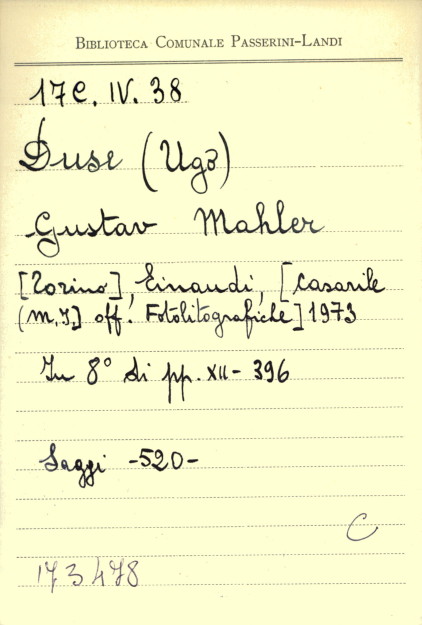 BIBLIOTECA COMUNALE PASSERINI-LANDI
17C. IV. 38
Duse (Ugo)
Gustav Mahler
[Torino], Einaudi, [Casarile
(M.I.) off. Fotolitografiche] 1973
In 8° di pp. XII - 396
Saggi -520-
C
173478